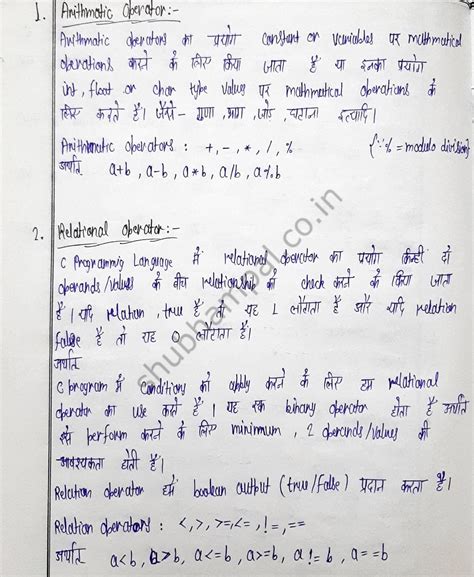 1. Arithmatic Operator:-
Arithmatic operators का प्रयोग constant or variables पर mathmatical
operations करने के लिए किया जाता है या इनका प्रयोग
int, float or char type values पर mathmatical operations के
लिए करते हैं। जैसे- गुणा, भाग, जोड़, घटाना इत्यादि।
Arithmatic operators : +, -, *, /, % {∵% = modulo division}
अर्थात a+b, a-b, a*b, a/b, a%b
2. Relational operator:-
C Programming Language में relational operator का प्रयोग किन्हीं दो
operands/values के बीच relationship को check करने के किया जाता
है। यदि relation, true है तो यह 1 लौटाता है और यदि relation
false है तो यह 0 लौटाता है।
अर्थात
C program में conditions को apply करने के लिए हम relational
operator का use करते हैं। यह एक binary operator होता है अर्थात
इसे perform करने के लिए minimum, 2 operands/values की
आवश्यकता होती है।
Relation operator हमें boolean output (true/false) प्रदान करता है।
Relation operators : <, >, >=, <=, !=, ==
अर्थात a<b, a>b, a<=b, a>=b, a!=b, a==b
shubhampal.co.in